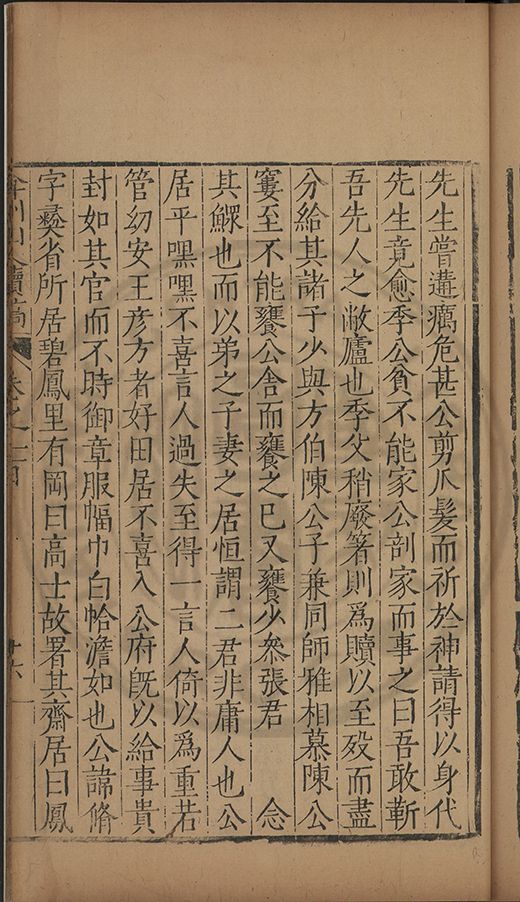 先生嘗遘癘危甚公剪爪髮而祈於神請得以身代
先生竟愈季公貧不能家公剖家而事之曰吾敢靳
吾先人之敝廬也季父稍廢箸則爲贖以至歿而盡
分給其諸子少與方伯陳公子兼同師雅相慕陳公
窶至不能饔公舍而饔之巳又饔少叅張君
念
其鰥也而以弟之子妻之居恒謂二君非庸人也公
居平嘿嘿不喜言人過失至得一言人倚以爲重若
管幼安王彥方者好田居不喜入公府旣以給事貴
封如其官而不時御章服幅巾白帢澹如也公諱脩
字彞省所居碧鳳里有岡曰高士故署其齋居曰鳳
弇州山人續稿
卷之
十六